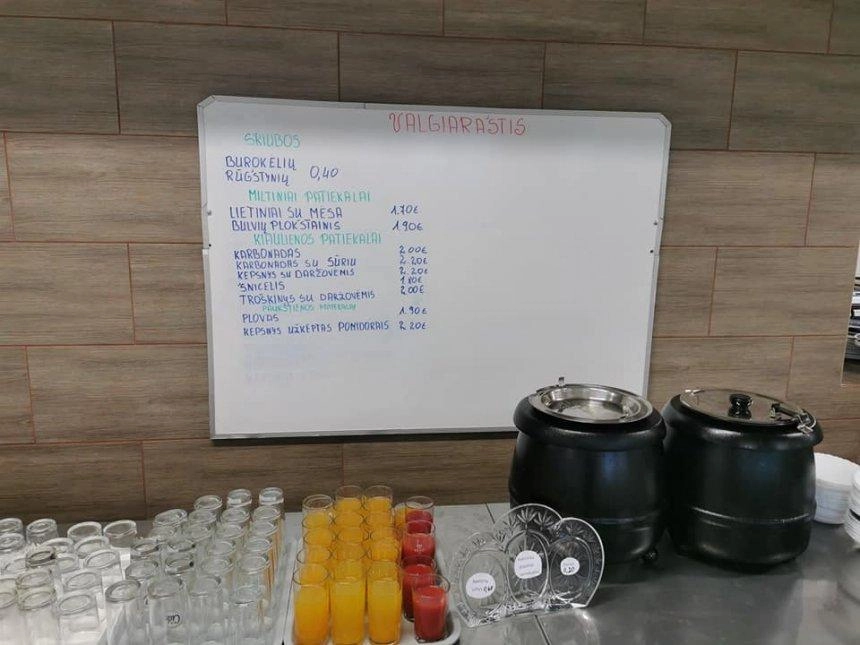 VALGIARAŠTIS
SRIUBOS
BUROKĖLIŲ
RŪGŠTYNIŲ 0,40
MILTINIAI PATIEKALAI
LIETINIAI SU MĖSA 1.70€
BULVIŲ PLOKŠTAINIS 1.90€
KIAULIENOS PATIEKALAI
KARBONADAS 2.00€
KARBONADAS SU SŪRIU 2.20€
KEPSNYS SU DARŽOVĖMIS 2.20€
ŠNICELIS 1.80€
TROŠKINYS SU DARŽOVĖMIS 2.00€
PAUKŠTIENOS PATIEKALAI
PLOVAS 1.90€
KEPSNYS UŽKEPTAS POMIDORAIS 2.20€